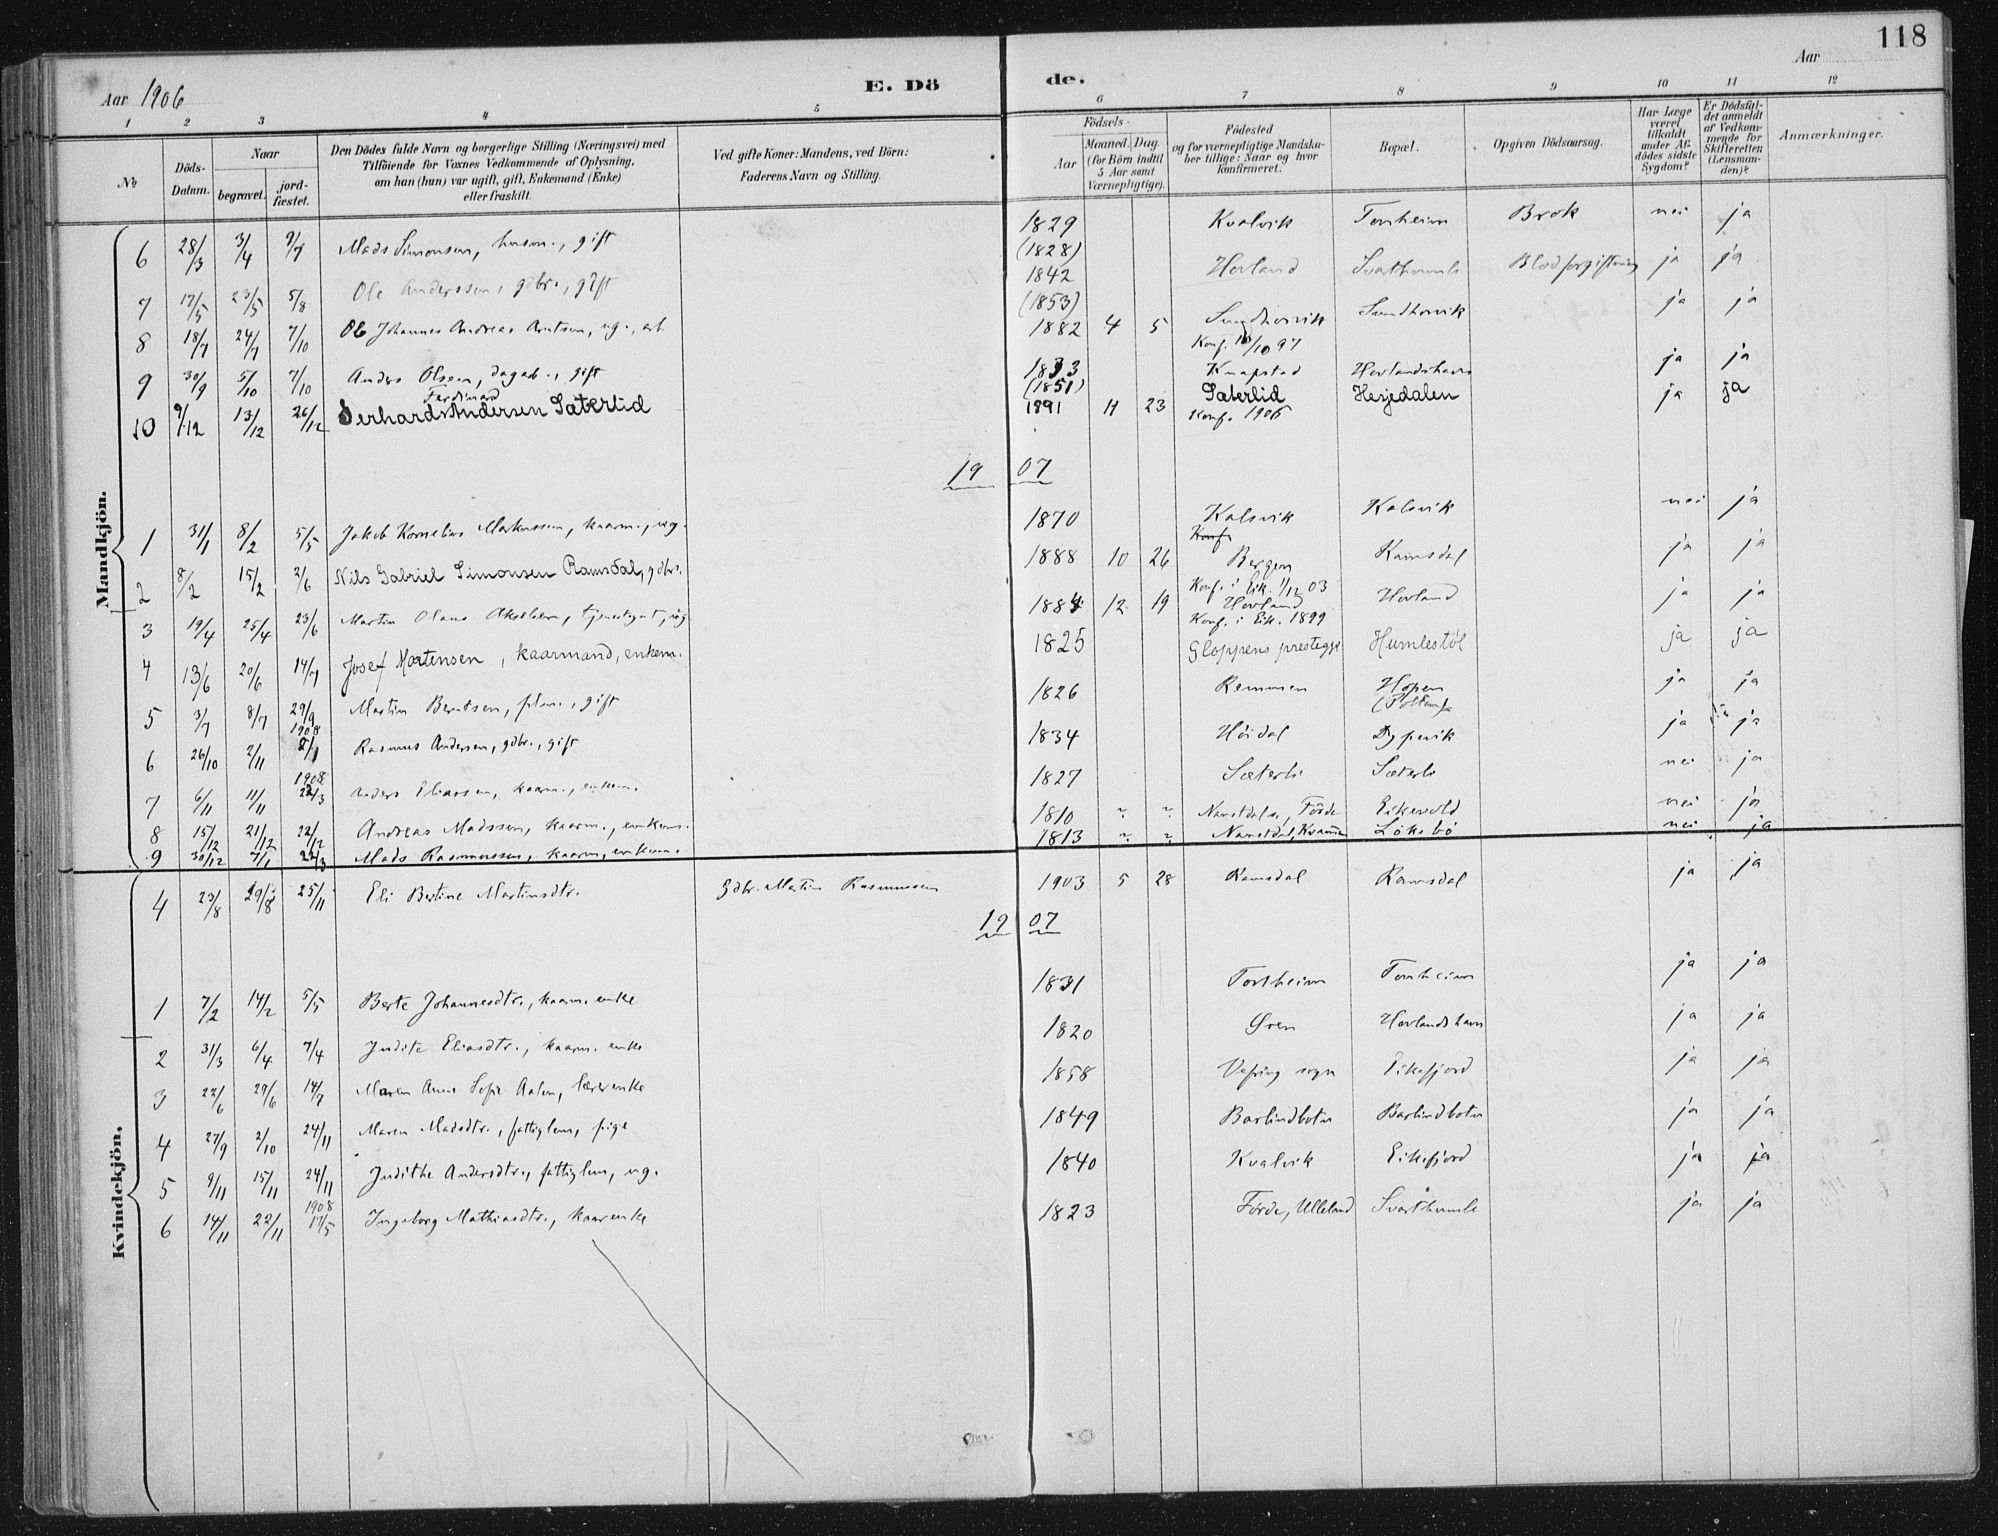 118
Aar 1906
E. Dö de.
Aar
1 2 3 4 5 6 7 8 9 10 11 12
No
Döds-Datum.
Naar
begravet.
jordfæstet.
Den Dödes fulde Navn og borgerlige Stilling (Næringsvei) med Tilföiende for Voxnes Vedkommende af Oplysning, om han (hun) var ugift, gift, Enkemand (Enke) eller fraskilt.
Ved gifte Koner: Mandens, ved Börn: Faderens Navn og Stilling.
Födsels-
Aar
Maaned. Dag.
(for Börn indtil 5 Aar samt Værnepligtige).
Födested og for værnepligtige Mandskaber tillige: Naar og hvor konfirmeret.
Bopæl.
Opgiven Dödsaarsag.
Har Læge været tilkaldt under Afdödes sidste Sygdom?
Er Dödsfaldet anmeldt af Vedkommende for Skifteretten (Lensmanden)?
Anmærkninger.
Mandkjön.
6 28/3 3/4 9/7 Mads Simonsen, husm., gift 1829 (1828) Kvalvik Tonheim Brok nei ja
7 17/5 23/5 5/8 Ole Anderssen, gdbr., gift 1842 (1853) Hovland Svarthumle Blodforgiftning ja ja
8 18/7 24/7 7/10 Ole Johannes Andreas Arntsen, ug., arb 1882 4 5 Sundhovik Sundhovik ja ja
Konf. 10/10 97
9 30/9 5/10 7/10 Anders Olsen, dagarb., gift 1833 (1851) Knapstad Hovlandshavn ja ja
Ferdinand
10 9/12 13/12 26/12 Gerhard Andersen Sæterlid 1891 11 23 Sæterlid Hesjedalen ja ja
Konf. 1906
19 07
1 31/1 8/2 5/5 Jakob Kornelius Markussen, kaarm., ug. 1870 Kalsvik Kalsvik nei ja
Konf.
2 8/2 15/2 2/6 Nils Gabriel Simonsen Ramsdal, gdbr. 1888 10 26 Bergen Ramsdal ja ja
Konf. i Eik. 1/12 03
3 19/4 25/4 23/6 Martin Olaus Akselsen, tjenestegut, ug 1884 12 19 Hovland Hovland ja ja
Konf. i Eik. 1899
4 13/6 20/6 14/7 Josef Mortensen, kaarmand, enkem. 1825 Gloppens prestegje Humlestøl ja ja
5 3/7 8/7 29/9 Martin Berntsen, gift 1826 Remmen Hopen ja ja
6 26/10 2/11 1908 5/1 Rasmus Andersen, gdbr., gift 1834 Höidal Dypevik ja ja
7 6/11 11/11 1908 22/3 Anders Eliassen, kaarm., enkem. 1827 Sæterli Sæterli nei ja
8 15/12 21/12 22/12 Andreas Madssen, kaarm., enkem. 1810 " " Naustdal, Förde Eikevold nei ja
9 30/12 7/1 22/3 Mads Rasmussen, kaarm, enkem. 1813 " " Naustdal, Kvamme Löksbö nei ja
Kvindekjön.
4 23/8 29/8 25/11 Eli Bertine Martinsdtr. Gdbr. Martin Rasmussen 1903 5 28 Ramsdal Ramsdal ja ja
19 07
1 7/2 14/2 5/5 Berte Johannesdtr., kaarm. enke 1831 Tonheim Tonheim ja ja
2 31/3 6/4 7/4 Judite Eliasdtr., kaarm. enke 1820 Øren Hovlandshavn ja ja
3 22/6 29/6 14/7 Maren Anne Sofie Aalen, lærerenke 1858 Vefring sogn Eikefjord ja ja
4 27/9 2/10 24/11 Maren Madsdtr., fattiglem, pige 1849 Barlindbotn Barlindbotn ja ja
5 9/11 15/11 24/11 Judithe Andersdtr., fattiglem, ug. 1840 Kvalvik Eikefjord ja ja
6 14/11 22/11 1908 17/5 Ingeborg Mathiasdtr., kaarenke 1823 Förde, Ulleland Svarthumle ja ja